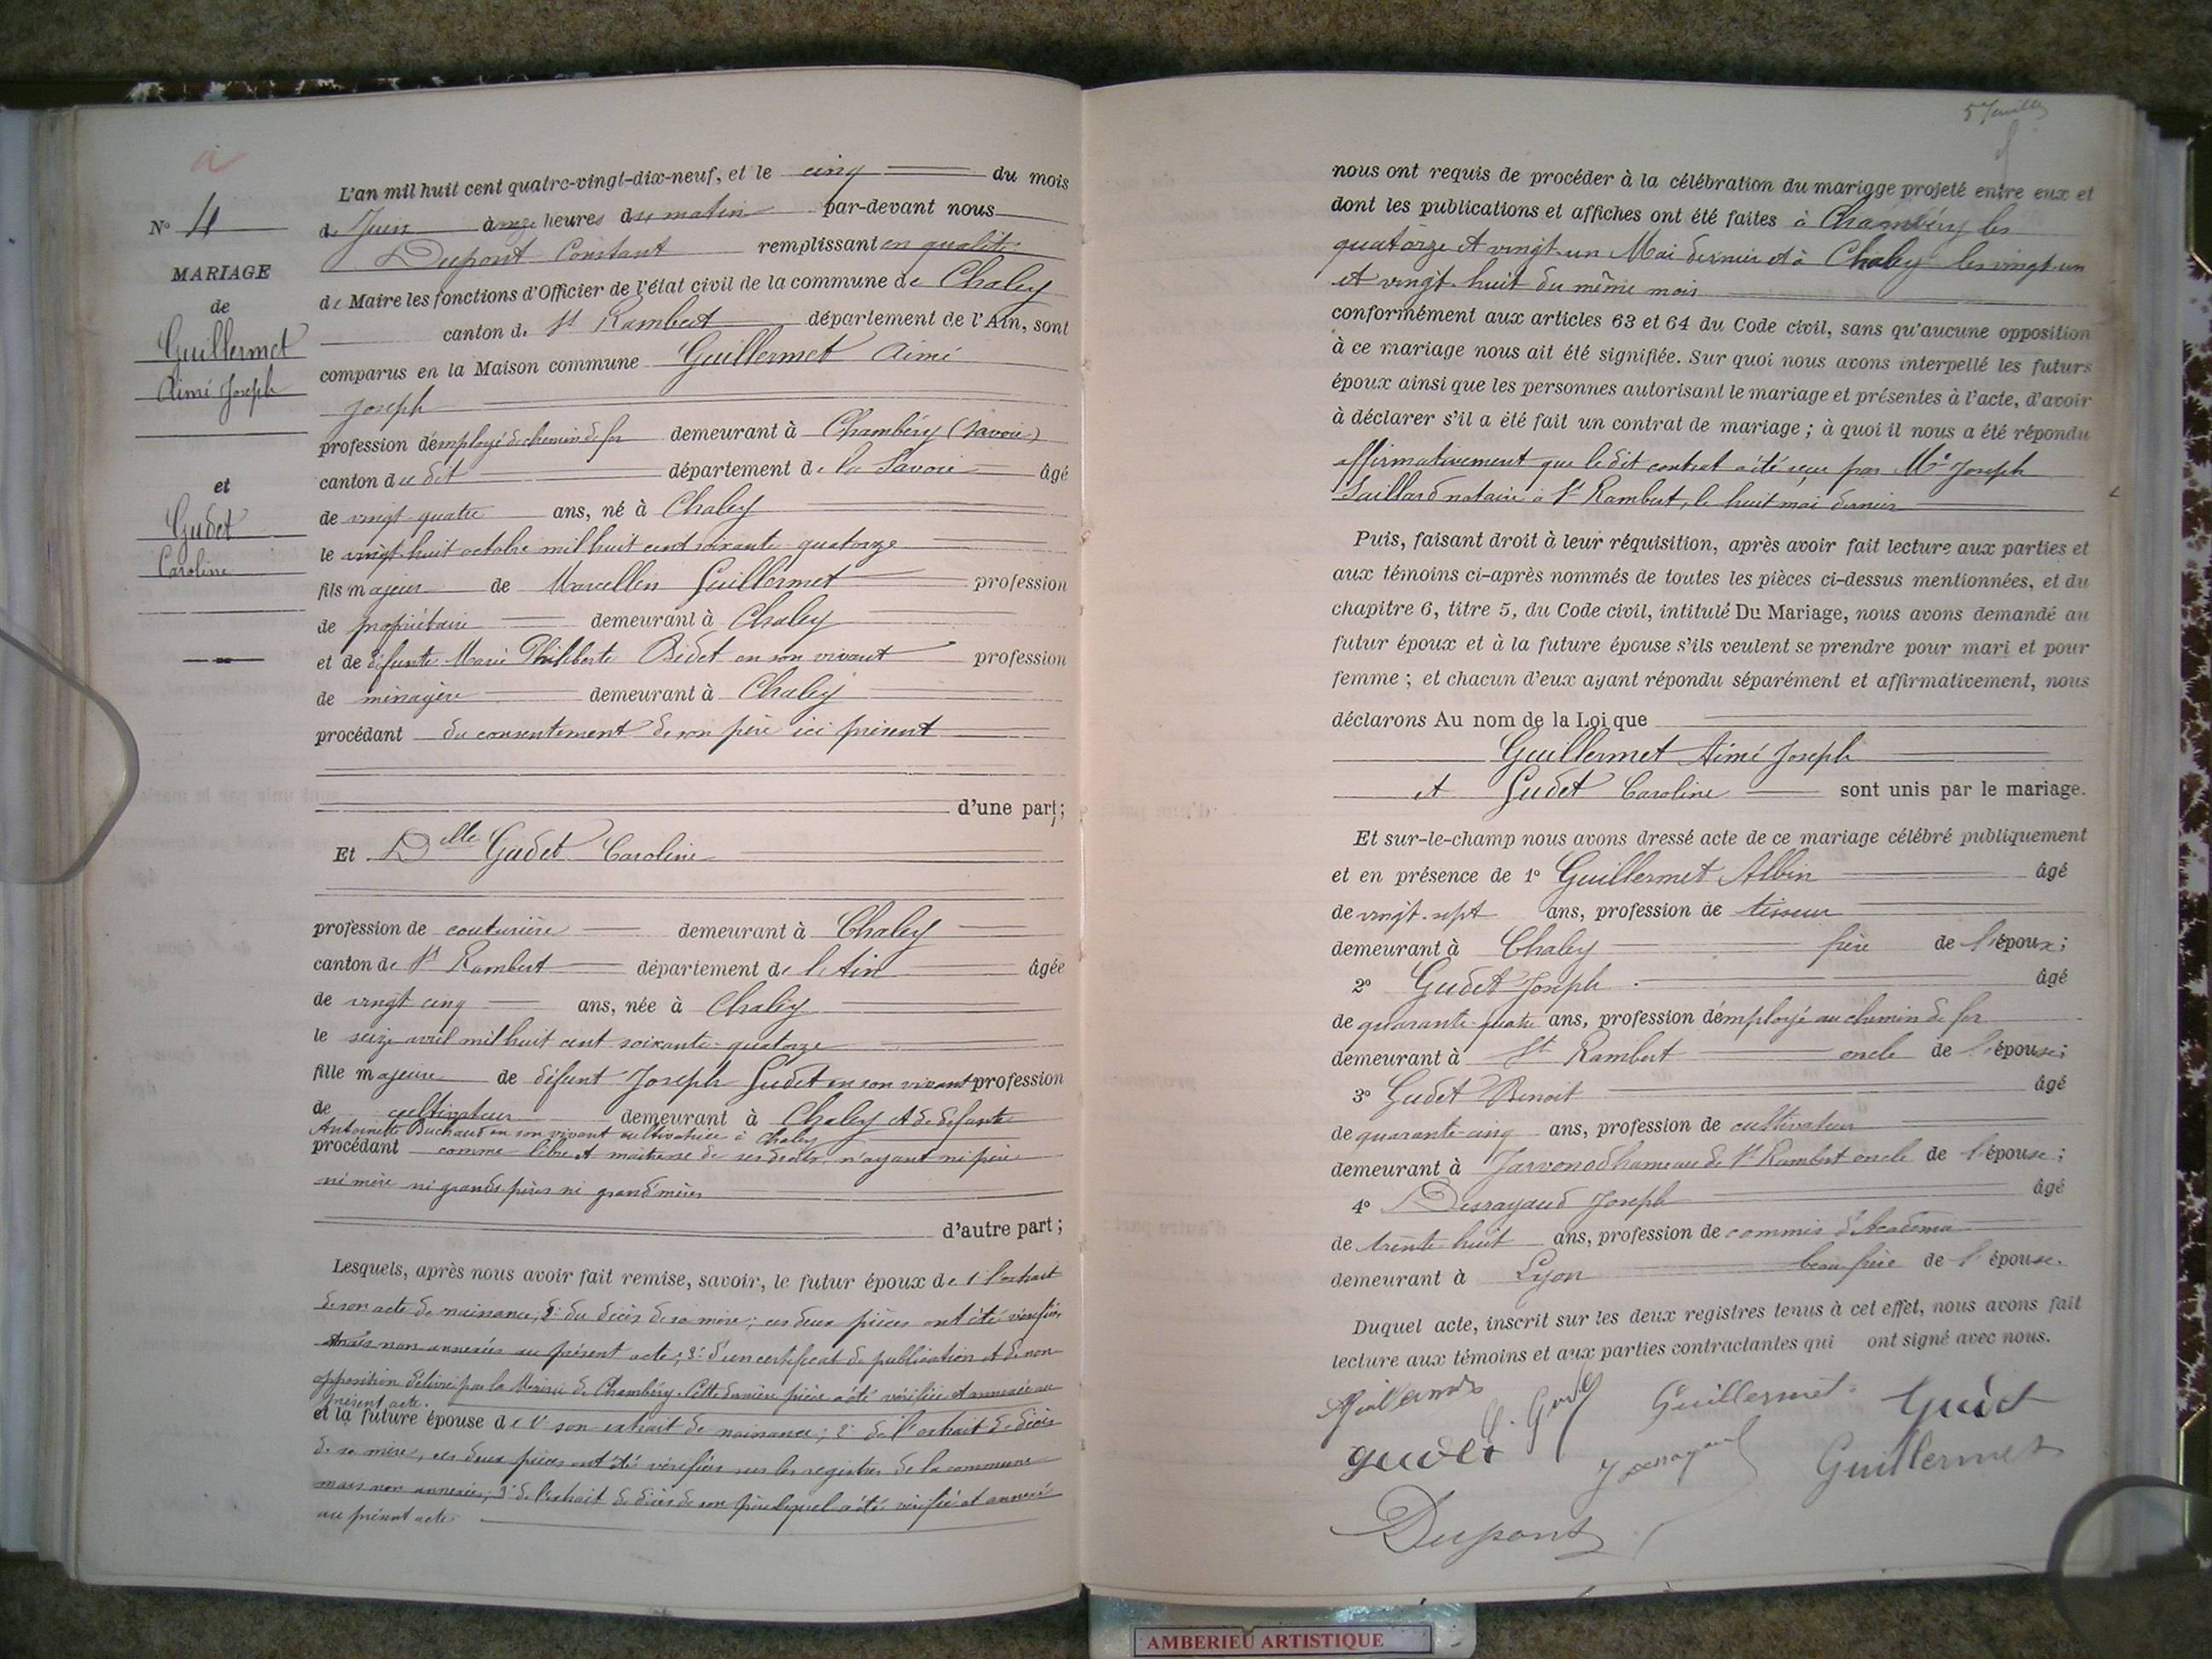 a
N° 4
MARIAGE
de
Guillermet
Aimé Joseph
et
Gudet
Caroline
L'an mil huit cent quatre-vingt-dix-neuf, et le cinq du mois
de Juin à onze heures du matin par-devant nous
Dupont Constant remplissant en qualité
de Maire les fonctions d'Officier de l'état civil de la commune de Chaley
canton de St Rambert département de l'Ain, sont
comparus en la Maison commune Guillermet Aimé
Joseph
profession d'employé de chemin de fer demeurant à Chambéry (Savoie)
canton du dit département de la Savoie âgé
de vingt quatre ans, né à Chaley
le vingt-huit octobre mil huit cent soixante quatorze
fils majeur de Marcellin Guillermet profession
de propriétaire demeurant à Chaley
et de défunte Marie Philiberte Bidet en son vivant profession
de ménagère demeurant à Chaley
procédant du consentement de son père ici présent
d'une part;
Et Delle Gudet Caroline
profession de couturière demeurant à Chaley
canton de St Rambert département de l'Ain âgée
de vingt cinq ans, née à Chaley
le seize avril mil huit cent soixante-quatorze
fille majeure de défunt Joseph Gudet en son vivant profession
de cultivateur demeurant à Chaley et de défunte
Antoinette Buchaud en son vivant cultivatrice à Chaley
procédant comme libre et maitresse de ses droits n'ayant ni père
ni mère ni grands pères ni grand'mères
d'autre part;
Lesquels, après nous avoir fait remise, savoir, le futur époux de 1° l'extrait
de son acte de naissance; 2° du décès de sa mère; ces deux pièces ont été vérifiées
mais non annexées au présent acte; 3° d'un certificat de publication et de non
opposition délivré par la Mairie de Chambéry. Cette dernière pièce a été vérifiée et annexée au
présent acte.
et la future épouse de 1° son extrait de naissance; 2° de l'extrait de décès
de sa mère, ces deux pièces ont été vérifiées sur les registres de la commune
mais non annexées; 3° de l'extrait de décès de son père lequel a été vérifié et annexé
au présent acte
5 Juillet
nous ont requis de procéder à la célébration du mariage projeté entre eux et
dont les publications et affiches ont été faites à Chambéry les
quatorze et vingt-un Mai dernier et à Chaley les vingt-un
et vingt-huit du même mois
conformément aux articles 63 et 64 du Code civil, sans qu'aucune opposition
à ce mariage nous ait été signifiée. Sur quoi nous avons interpellé les futurs
époux ainsi que les personnes autorisant le mariage et présentes à l'acte, d'avoir
à déclarer s'il a été fait un contrat de mariage; à quoi il nous a été répondu
affirmativement que le dit contrat a été reçu par Me Joseph
Saillard notaire à St Rambert, le huit mai dernier
Puis, faisant droit à leur réquisition, après avoir fait lecture aux parties et
aux témoins ci-après nommés de toutes les pièces ci-dessus mentionnées, et du
chapitre 6, titre 5, du Code civil, intitulé Du Mariage, nous avons demandé au
futur époux et à la future épouse s'ils veulent se prendre pour mari et pour
femme; et chacun d'eux ayant répondu séparément et affirmativement, nous
déclarons Au nom de la Loi que
Guillermet Aimé Joseph
et Gudet Caroline sont unis par le mariage.
Et sur-le-champ nous avons dressé acte de ce mariage célébré publiquement
et en présence de 1° Guillermet Albin âgé
de vingt-sept ans, profession de tisseur
demeurant à Chaley frère de l'époux;
2° Gudet Joseph âgé
de quarante-quatre ans, profession d'employé au chemin de fer
demeurant à St Rambert oncle de l'épouse;
3° Gudet Benoit âgé
de quarante-cinq ans, profession de cultivateur
demeurant à hameau de St Rambert oncle de l'épouse;
4° Desrayaud Joseph âgé
de trente huit ans, profession de commis d'Académie
demeurant à Lyon beau frère de l'épouse.
Duquel acte, inscrit sur les deux registres tenus à cet effet, nous avons fait
lecture aux témoins et aux parties contractantes qui ont signé avec nous.
Guillermet Gudet
gudet Guillermet
Dupont
AMBERIEU ARTISTIQUE